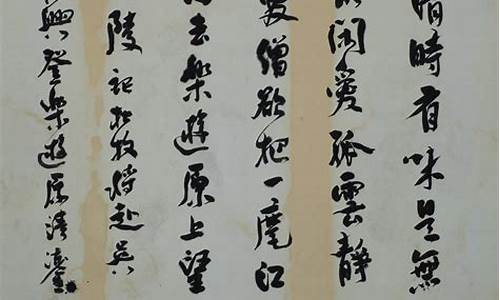 清時有味是無
閑愛孤雲靜
愛僧欲把一麾江
去樂遊原上望
陵 記杜牧將赴吳
興登樂遊原清